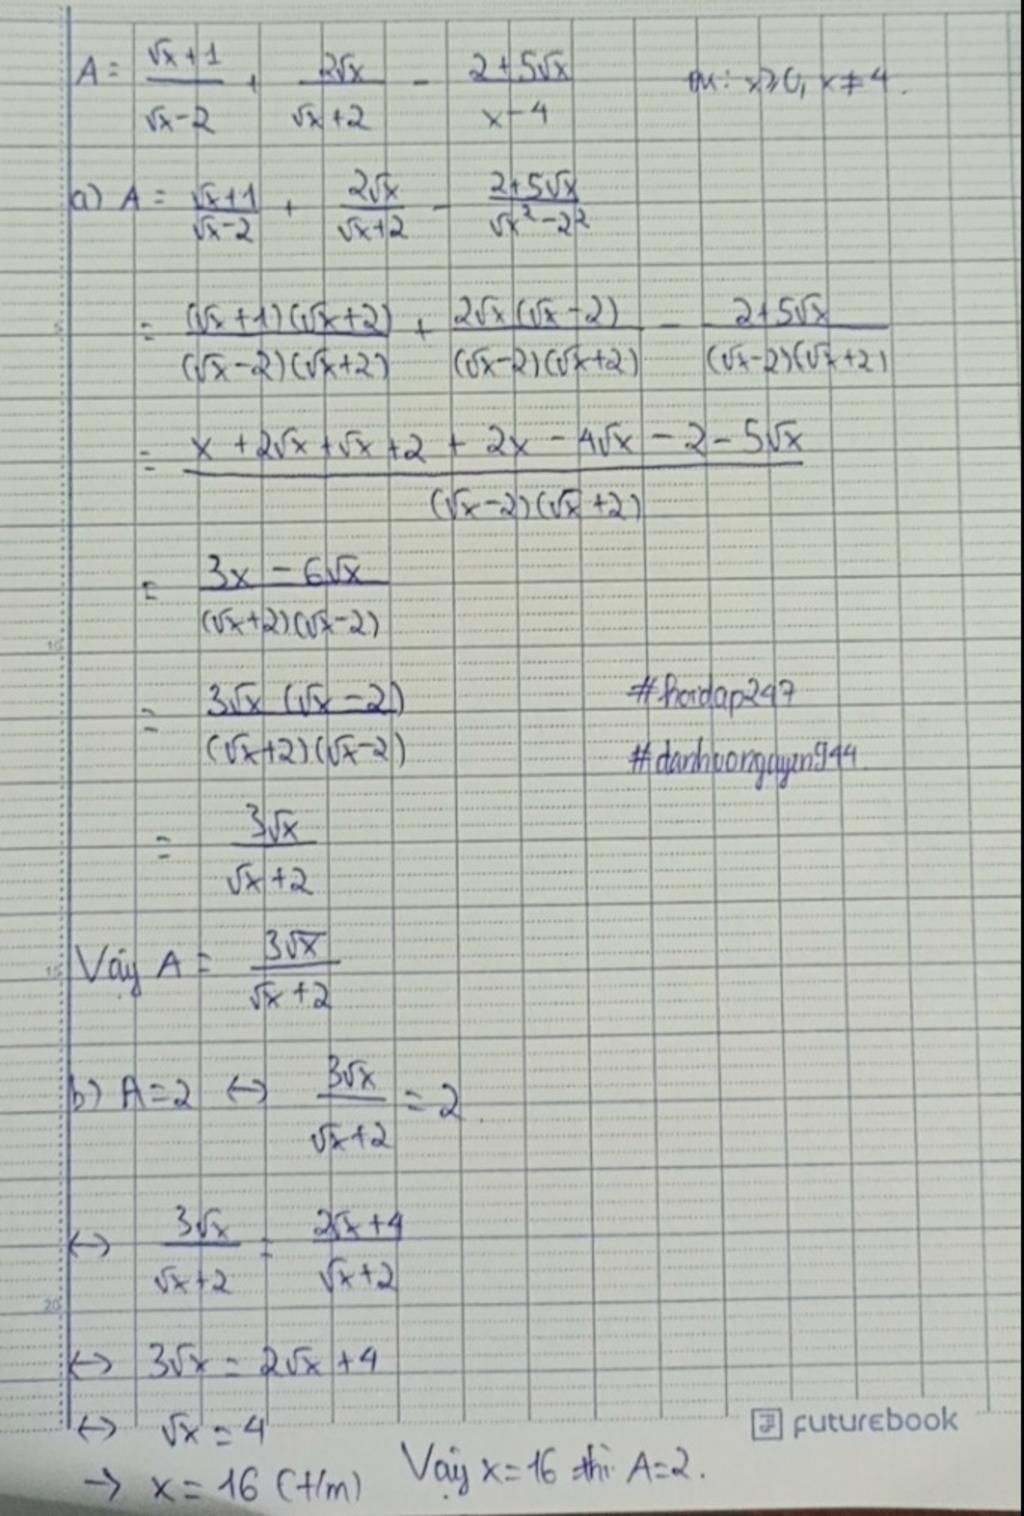 A = (√x+1)/(√x-2) + 2√x/(√x+2) - (2+5√x)/(x-4) đk: x≥0, x≠4.
a) A = (√x+1)/(√x-2) + 2√x/(√x+2) - (2+5√x)/(√x²-2²)
= (√x+1)(√x+2)/(√x-2)(√x+2) + 2√x(√x-2)/(√x-2)(√x+2) - (2+5√x)/(√x-2)(√x+2)
= (x+2√x+√x+2+2x-4√x-2-5√x)/(√x-2)(√x+2)
= (3x-6√x)/(√x+2)(√x-2)
= 3√x(√x-2)/(√x+2)(√x-2)
#hoidap247
#danhvonguyen944
= 3√x/(√x+2)
Vậy A = 3√x/(√x+2)
b) A=2 ↔ 3√x/(√x+2) = 2
↔ 3√x/(√x+2) = (2√x+4)/(√x+2)
↔ 3√x = 2√x+4
↔ √x = 4
→ x = 16 (t/m) Vậy x=16 thì A=2.
futurebook